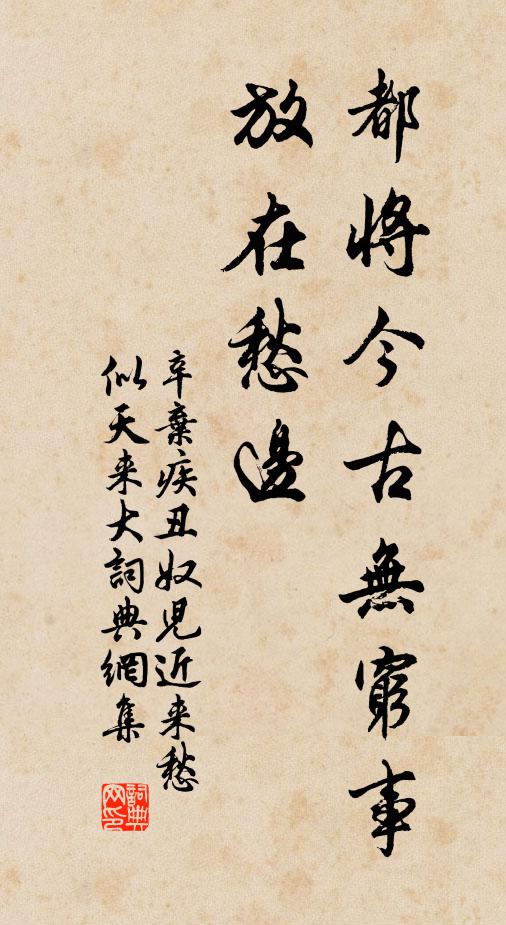 都將今古無窮事
放在愁邊
辛棄疾丑奴兒近来愁
似天来大詞典網集
詞典
网印